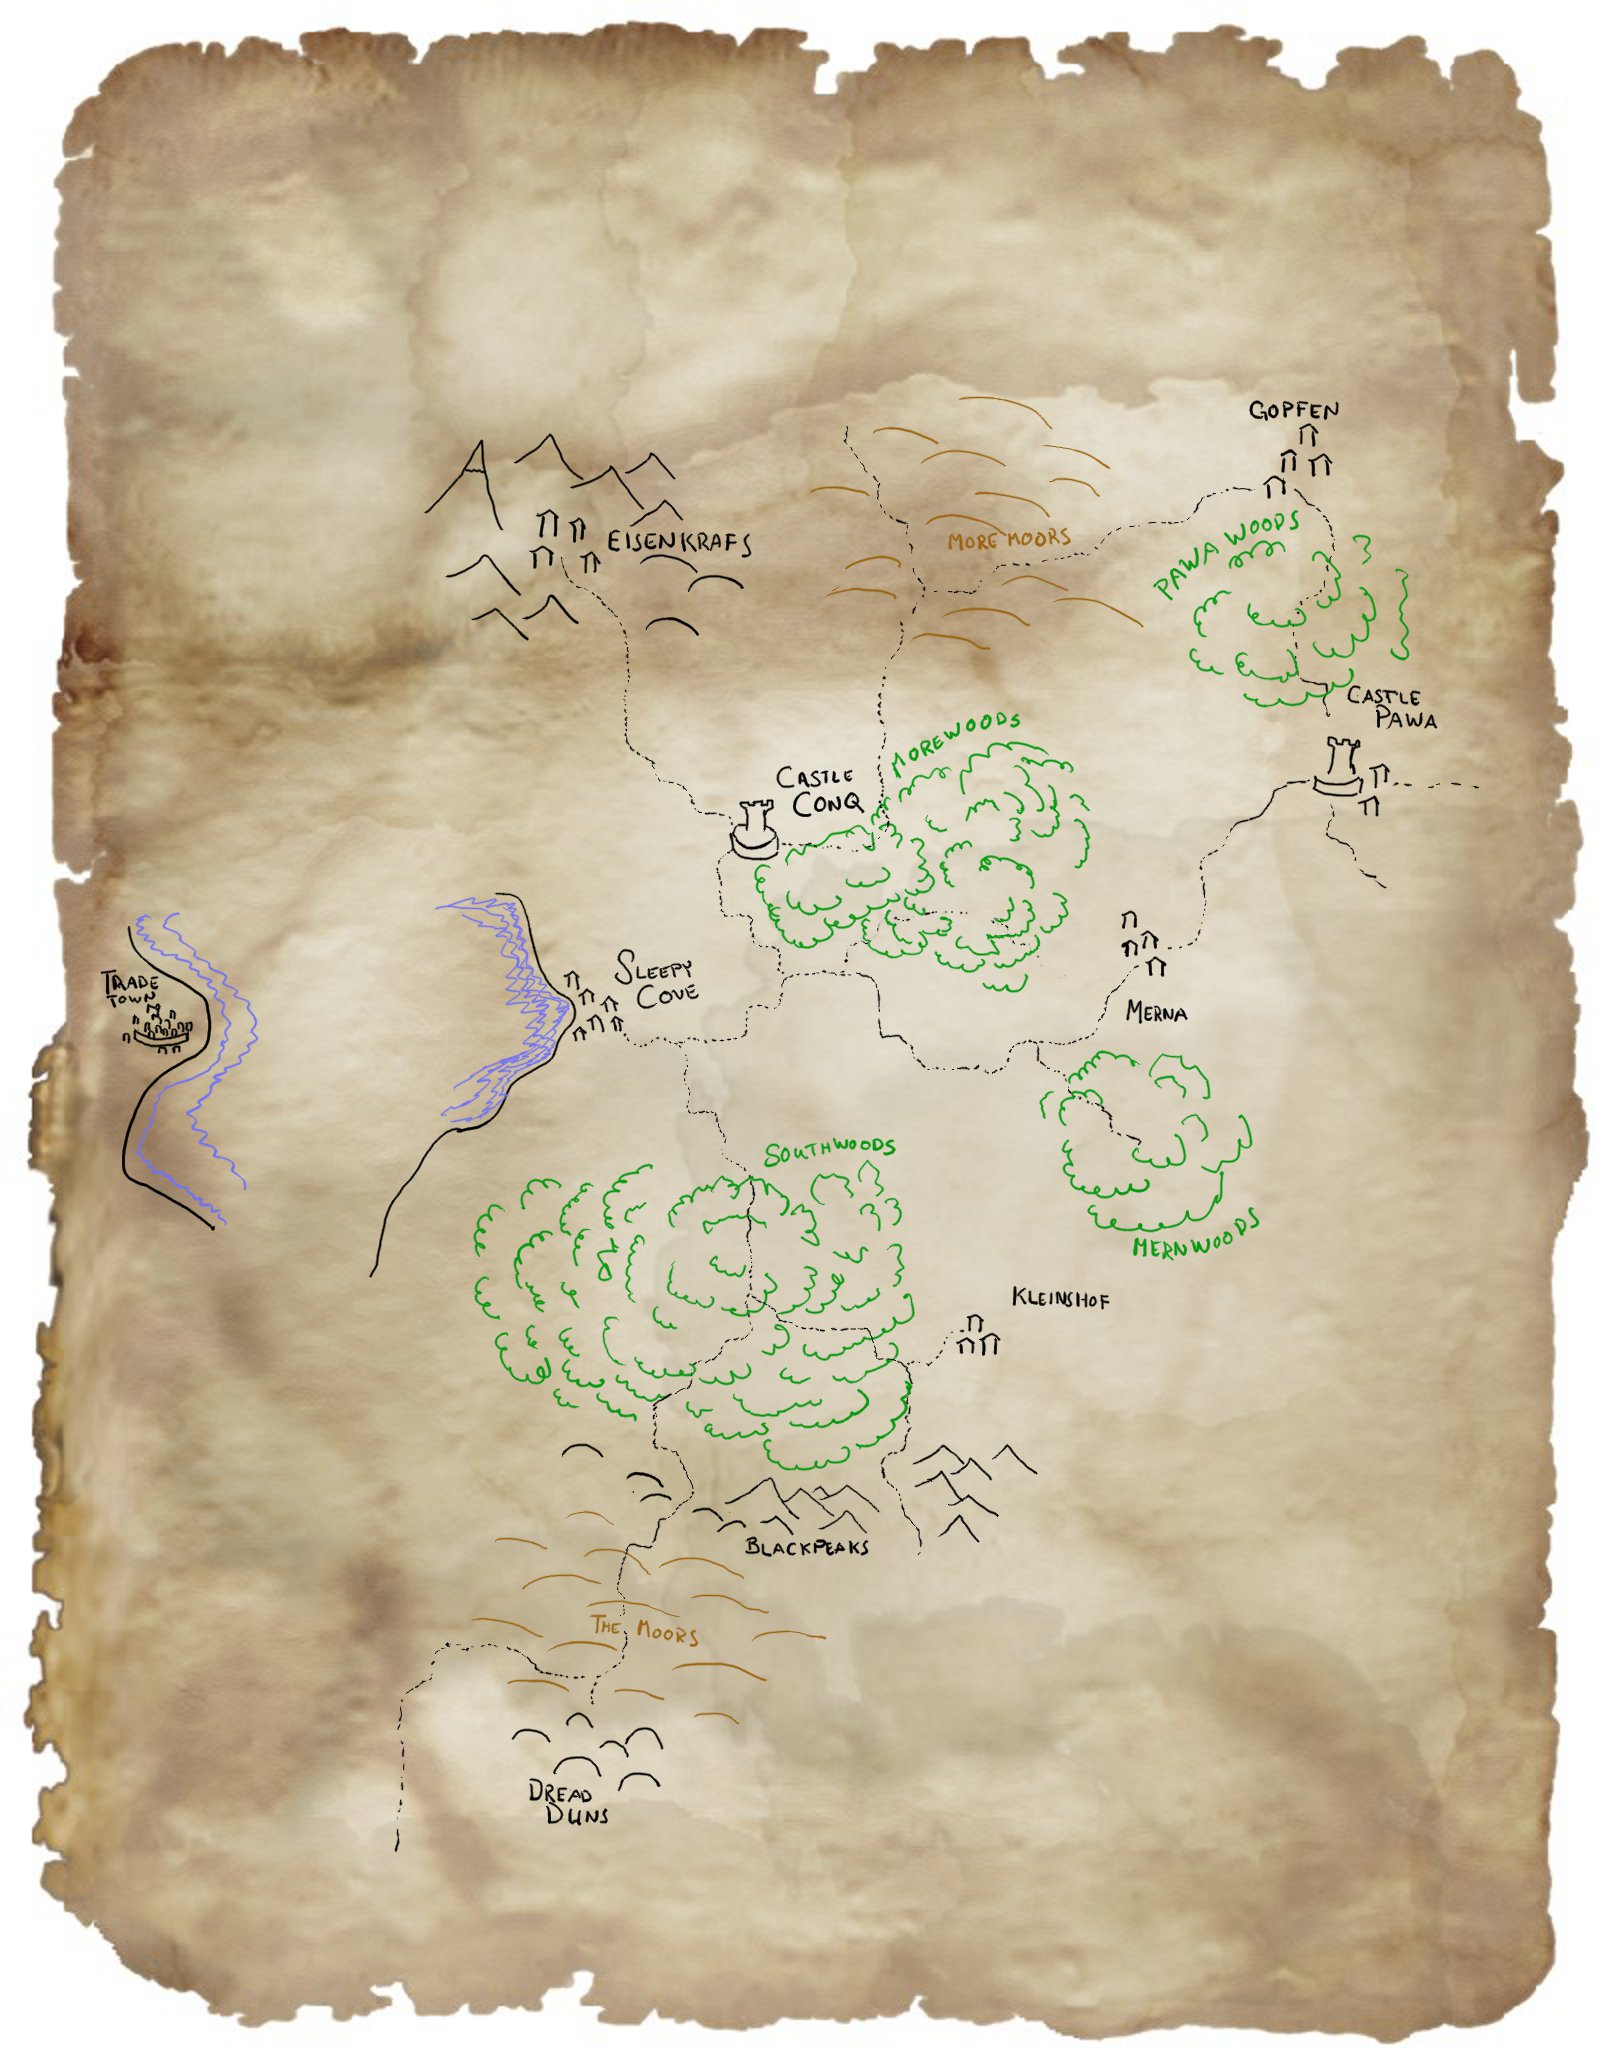 GOPFEN
EISENKRAFS
MORE MOORS
PAWA WOODS
CASTLE
PAWA
MOREWOODS
CASTLE
CONQ
SLEEPY
COVE
TRADE
TOWN
MERNA
SOUTHWOODS
MERNWOODS
KLEINSHOF
BLACKPEAKS
THE MOORS
DREAD
DUNS